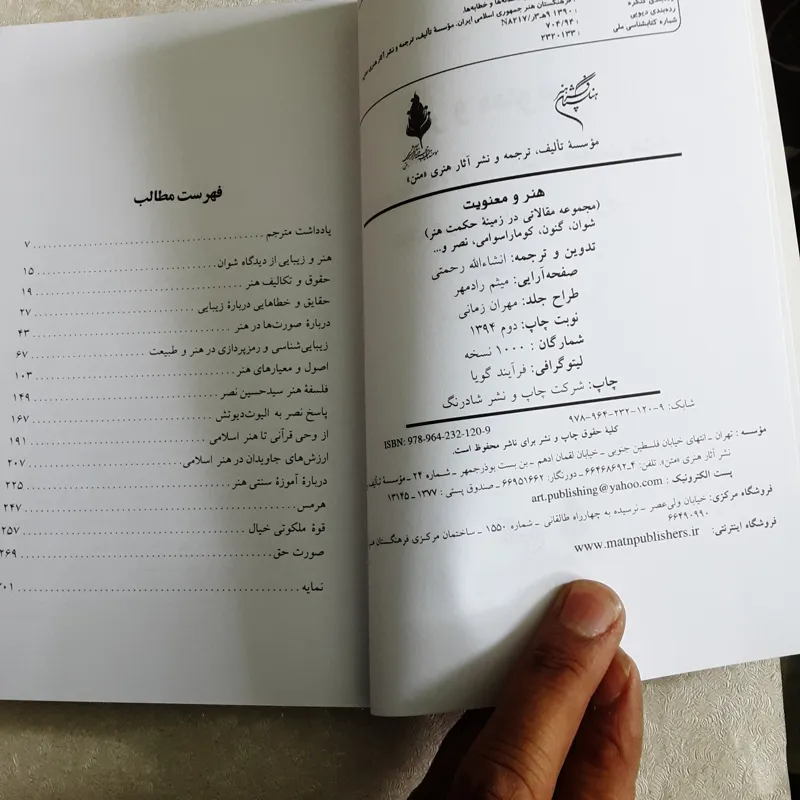 رده‌بندی دیویی
شماره کتابشناسی ملی
: ۱۳۹۰ ۹ه‍۳ر/N۸۲۱۷
: ۷۰۴/۹۴
: ۲۳۲۰۱۳۳
فرهنگستان هنر جمهوری اسلامی ایران، مؤسسهٔ تألیف، ترجمه و نشر آثار هنری متن
مؤسسهٔ تألیف، ترجمه و نشر آثار هنری «متن»
هنر و معنویت
(مجموعه مقالاتی در زمینهٔ حکمت هنر)
شوان، گنون، کوماراسوامی، نصر و...
تدوین و ترجمه: انشاءالله رحمتی
صفحه‌آرایی: میثم رادمهر
طراح جلد: مهران زمانی
نوبت چاپ: دوم ۱۳۹۴
شمارگان : ۱۰۰۰ نسخه
لیتوگرافی: فرآیند گویا
چاپ: شرکت چاپ و نشر شادرنگ
شابک: ۹-۱۲۰-۲۳۲-۹۶۴-۹۷۸
ISBN: 978-964-232-120-9
کلیهٔ حقوق چاپ و نشر برای ناشر محفوظ است.
مؤسسه : تهران - انتهای خیابان فلسطین جنوبی - خیابان لقمان ادهم - بن بست بوذرجمهر - شماره ۲۴ - مؤسسهٔ تألیف،
نشر آثار هنری «متن». تلفن: ۴-۶۶۴۶۸۶۹۲ - دورنگار: ۶۶۹۵۱۶۶۲ - صندوق پستی : ۱۳۷۷ - ۱۳۱۴۵
پست الکترونیک : art.publishing@yahoo.com
فروشگاه مرکزی: خیابان ولی‌عصر - نرسیده به چهارراه طالقانی - شماره ۱۵۵۰ - ساختمان مرکزی فرهنگستان
۶۶۴۹۰۹۹۰
فروشگاه اینترنتی: www.matnpublishers.ir
فهرست مطالب
یادداشت مترجم ۷
هنر و زیبایی از دیدگاه شوان ۱۵
حقوق و تکالیف هنر ۱۹
حقایق و خطاهایی دربارهٔ زیبایی ۲۷
دربارهٔ صورت‌ها در هنر ۴۳
زیبایی‌شناسی و رمزپردازی در هنر و طبیعت ۶۷
اصول و معیارهای هنر ۱۰۳
فلسفهٔ هنر سیدحسین نصر ۱۴۹
پاسخ نصر به الیوت‌دیوتش ۱۶۷
از وحی قرآنی تا هنر اسلامی ۱۹۱
ارزش‌های جاویدان در هنر اسلامی ۲۰۷
دربارهٔ آموزهٔ سنتی هنر ۲۲۵
هرمس ۲۴۷
قوهٔ ملکوتی خیال ۲۵۷
صورت حق ۲۶۹
نمایه ۳۰۱